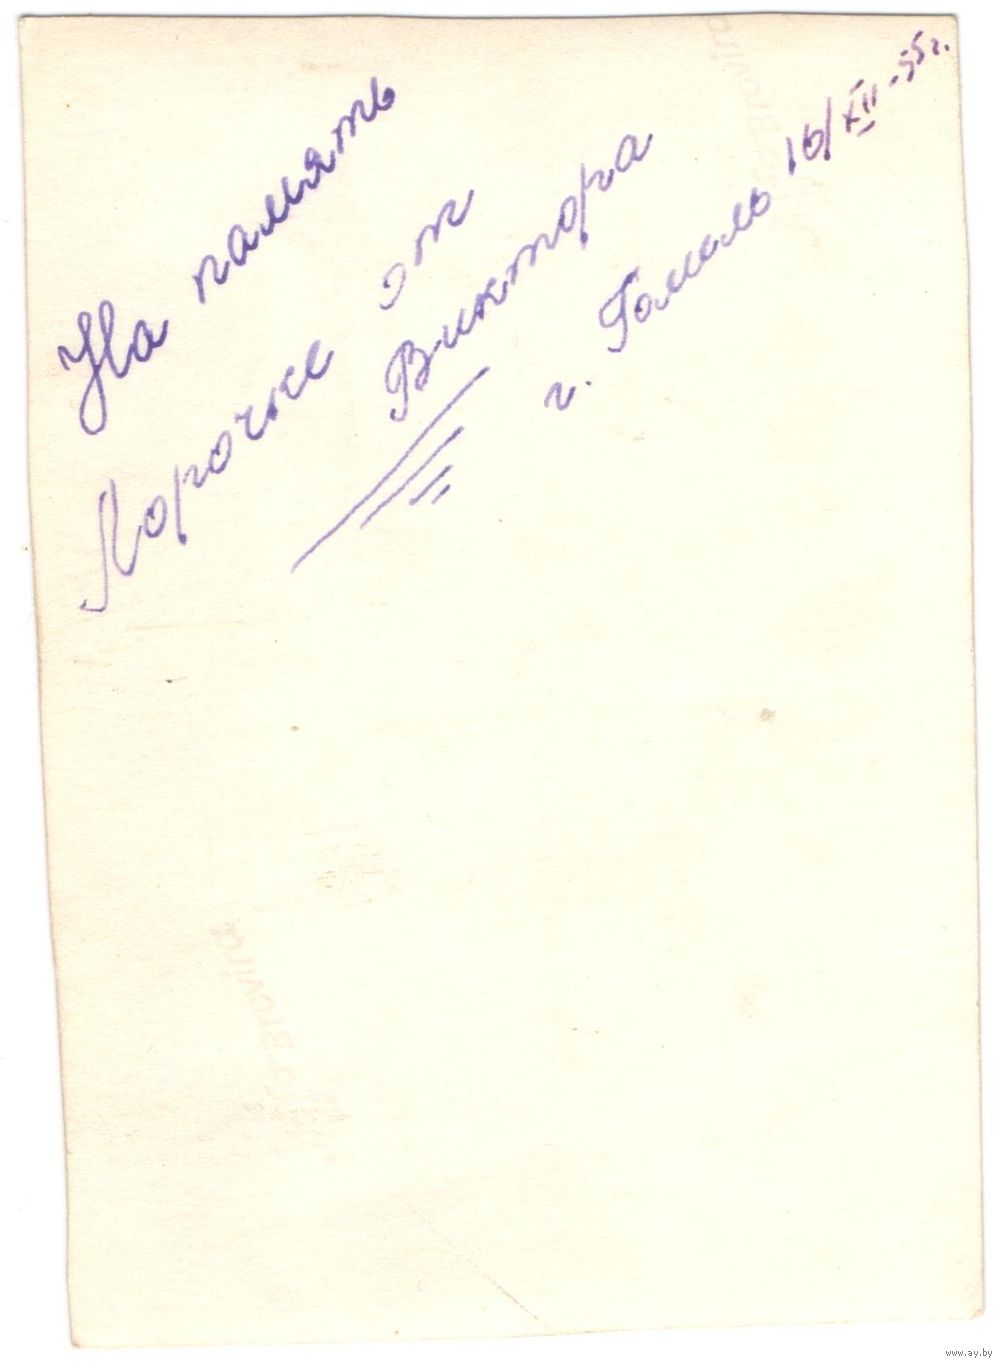 На память
Лорочке от
Виктора
г. Гомель 16/XII-55г.
www.ay.by